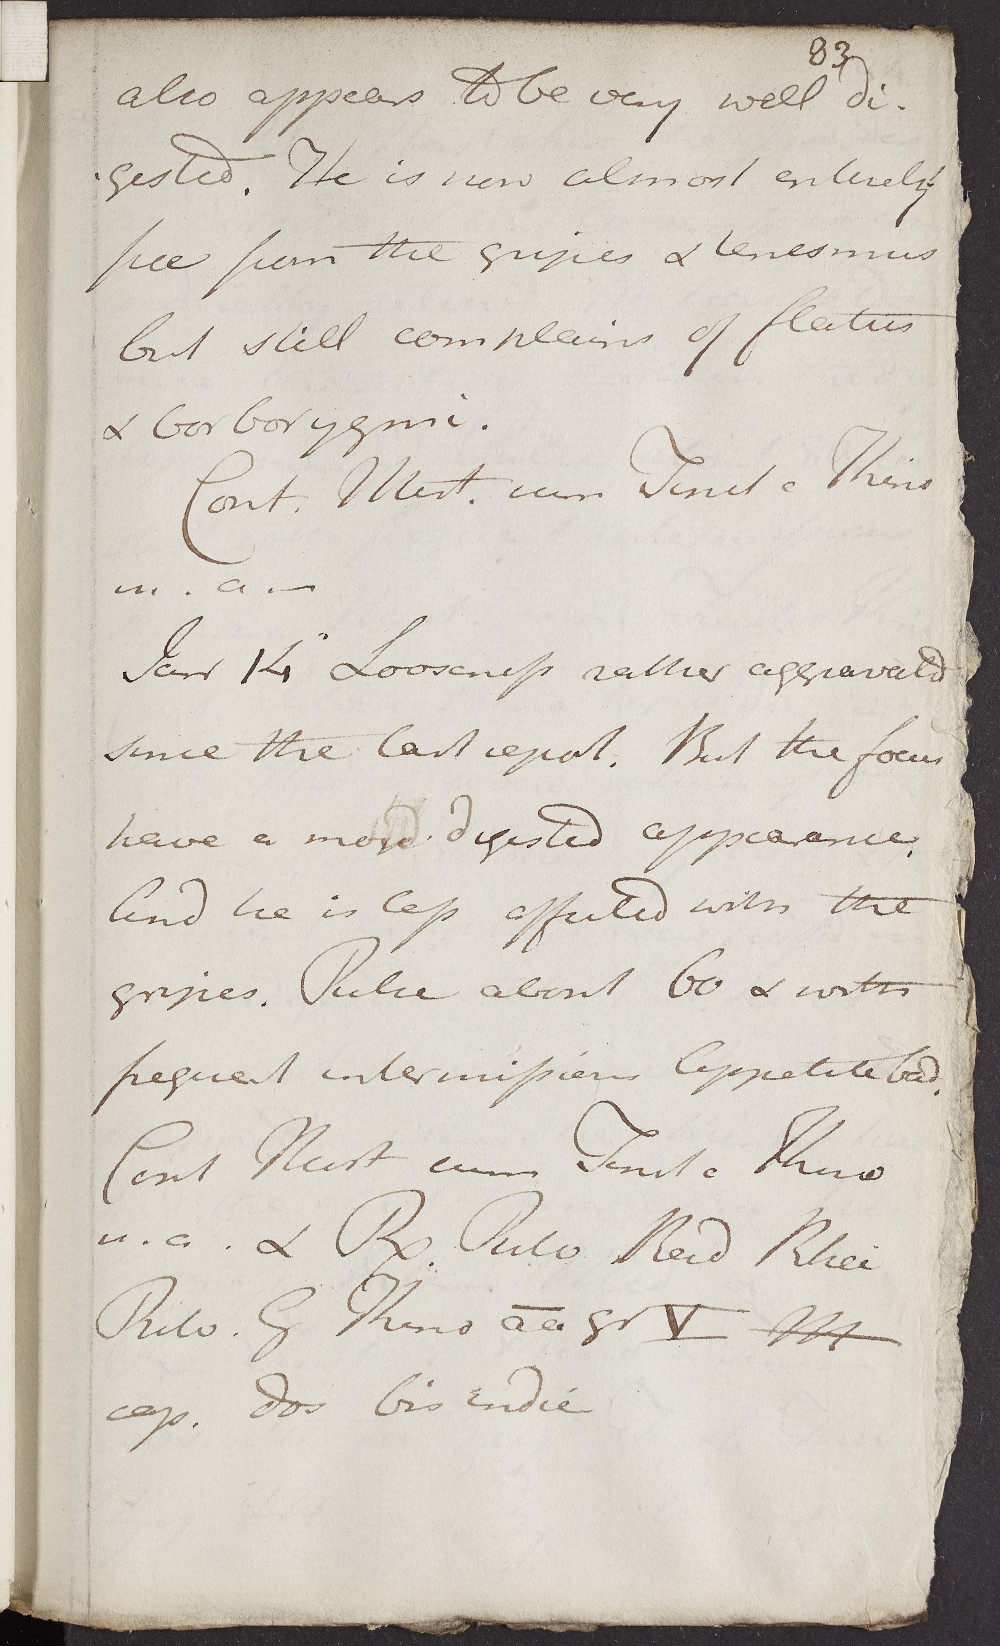 83
also appears to be very well di-
-gested. He is now almost entirely
free from the gripes & tenesmus
but still complains of flatus
& borborygmi.
Cont. Mist. cum Tinct e Kino
m. a
Janr 14 Looseness rather aggravated
since the last report. But the foeces
have a more digested appearance.
And he is less affected with the
gripes. Pulse about 60 & with
frequent intermissions Appetite bad.
Cont Mist cum Tinct e Kino
u. a. & Rx. Pulv Rad Rhei
Pulv. G Kino āā gr V M
cap. dos bis indie